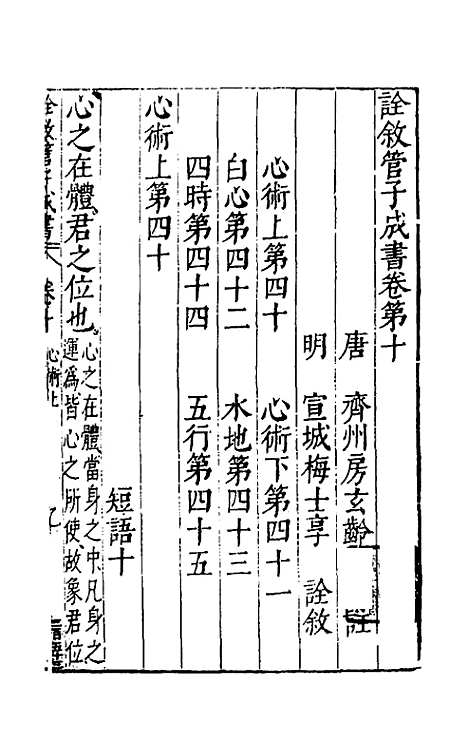 詮敘管子成書卷第十
唐 齊州房玄齡 註
明 宣城梅士享 詮敘
心術上第四十 心術下第四十一
白心第四十二 水地第四十三
四時第四十四 五行第四十五
心術上第四十
短語十
心之在體君之位也 心之在體當身之中凡身之運爲皆心之所使故象君位
詮敘管子成書 卷十 心術上